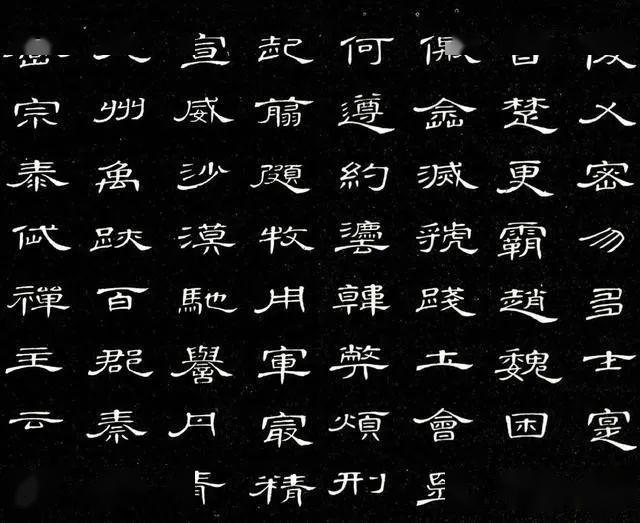 乂密勿多士寔
楚更霸趙魏困
滅虢踐土會
何遵約灋韓弊煩刑
起翦頗牧用軍最精
宣威沙漠馳譽丹
州禹跡百郡秦
宗泰岱禪主云